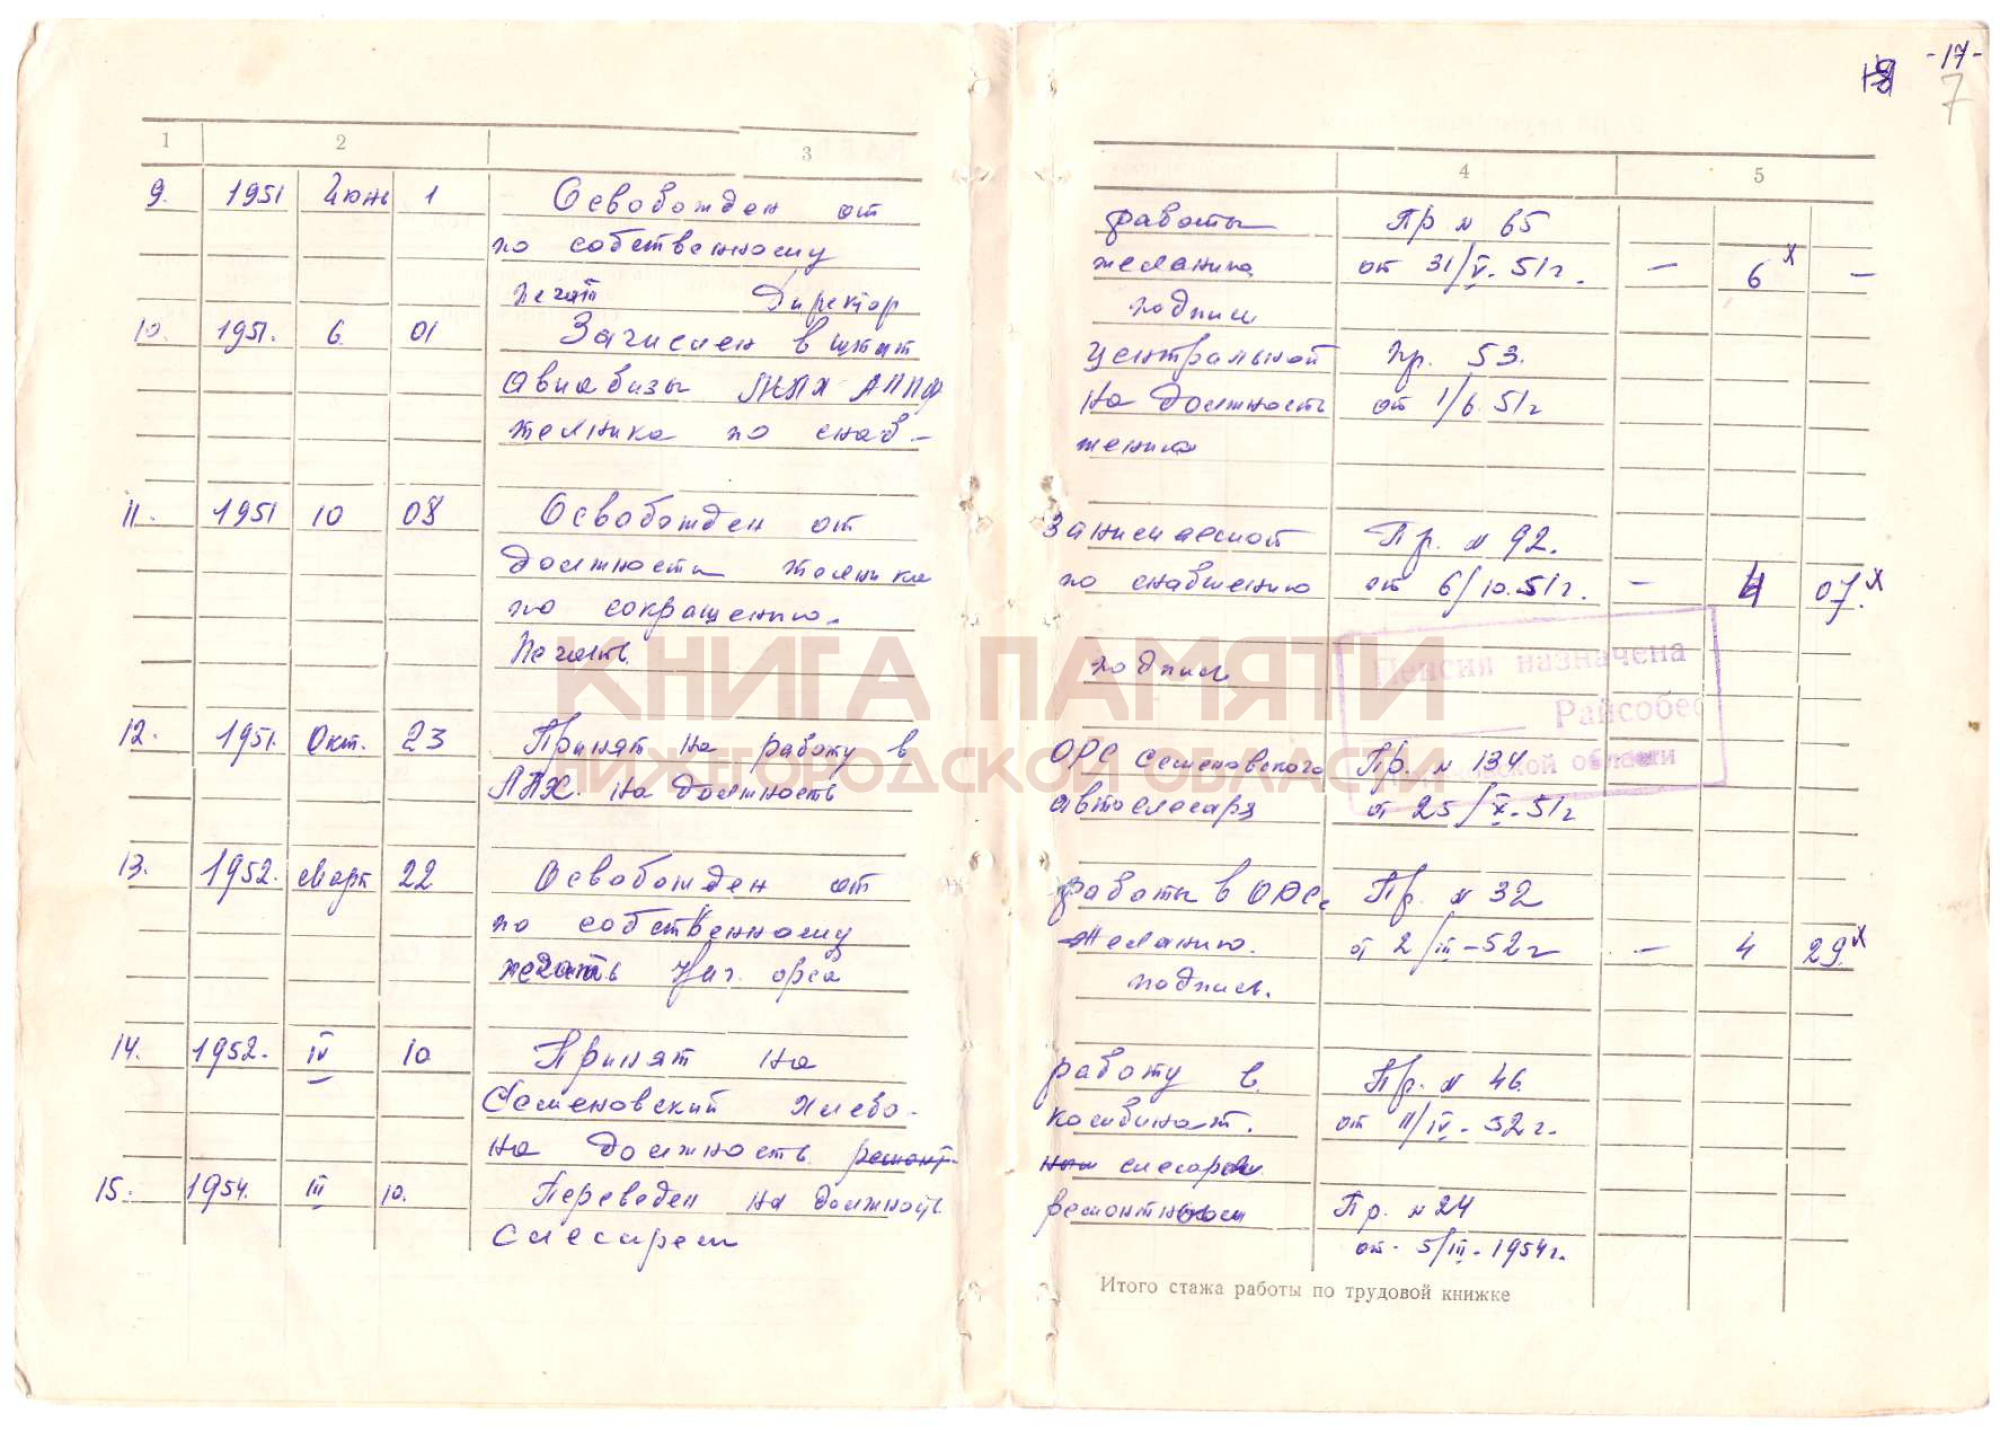 -17-
7
1 2 3 4 5
9. 1951 Июнь 1 Освобожден от работы Пр № 65
по собственному желанию от 31/V-51г. — 6х —
печат Директор подписи
10. 1951. 6 01 Зачислен в штат центральной Пр. 53.
Авиабазы АППФ на должность от 1/6. 51г
техника по снаб- жению
11. 1951 10 08 Освобожден от занимаемой Пр. № 92.
должности техника по снабжению от 6/10.51г. — 4 07.х
по сокращению.
Печать подписи
Пенсия назначена
Райсобес
области
12. 1951. Окт. 23 Принят на работу в ОРС Семеновского Пр. № 134
ЛПХ. на должность автослесаря от 25/X-51г
13. 1952. Март 22 Освобожден от работы в ОРСе Пр. № 32
по собственному желанию. от 2/III-52г — 4 29.х
печать Нач. орса подпись.
14. 1952. IV 10 Принят на работу в Пр. № 46
Семеновский хлебо- комбинат. от 11/IV-52г.
на должность ремонт- ным слесарем
15. 1954. III 10. Переведен на должность ремонтным Пр. № 24
слесарем от. 5/III-1954г.
Итого стажа работы по трудовой книжке
КНИГА ПАМЯТИ
НИЖЕГОРОДСКОЙ ОБЛАСТИ